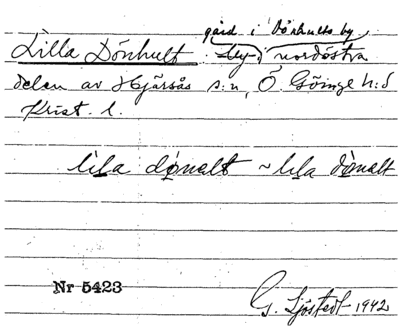 gård i Dönhults by
Lilla Dönhult by i nordöstra
delen av Hjärsås s:n, Ö. Göinge h:d
Krist. l.
lila dönalt ~ lila dönalt
Nr 5423
G. Sjöstedt 1942